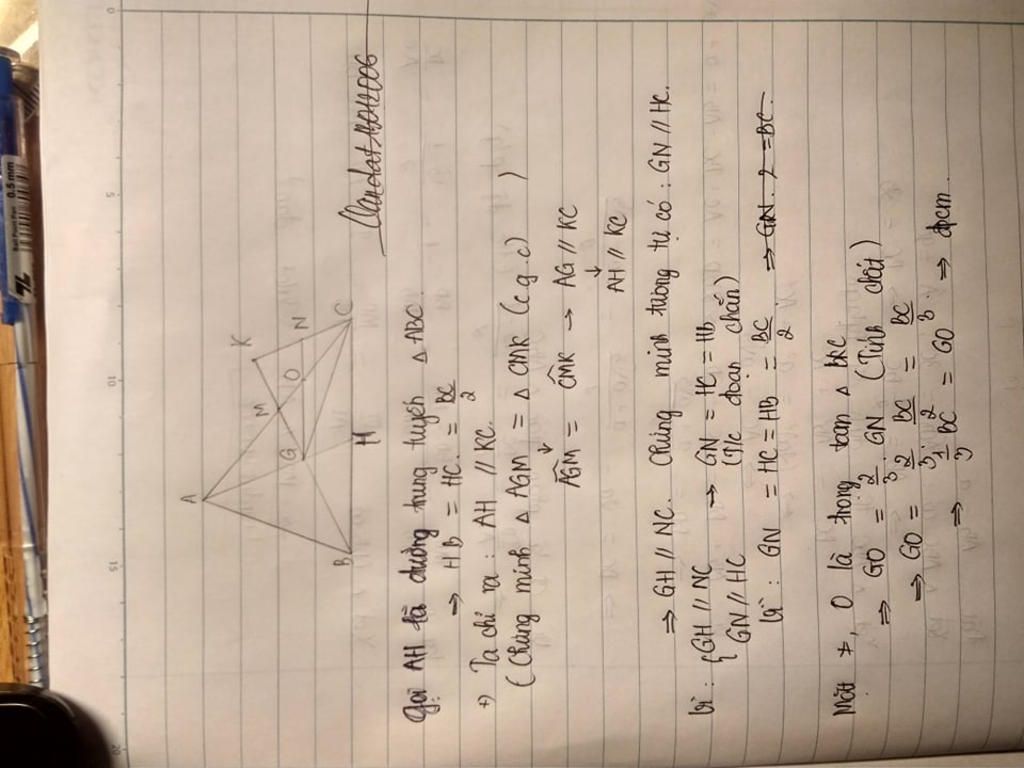 A
K
M
G
O
N
B
H
C
Gọi AH là đường trung tuyến Δ ABC.
⇒ HB = HC = BC/2
+) Ta chỉ ra : AH // KC.
( Chứng minh Δ AGM = Δ CMK (c g c) )
↓
AGM = CMK → AG // KC
↓
AH // KC
⇒ GH // NC. Chứng minh tương tự có : GN // HC.
Vì : { GH // NC → GN = HC = HB
GN // HC (t/c đoạn chắn)
Vì : GN = HC = HB = BC/2 ⇒ GN . 2 = BC.
Mặt ≠, O là trọng tâm Δ BKC.
⇒ GO = 2/3 . GN (Tính chất)
⇒ GO = 2/3 . BC/2 = BC/3
⇒ 1/3 BC = GO ⇒ đpcm.
0
5
10
15
20
0.5 mm